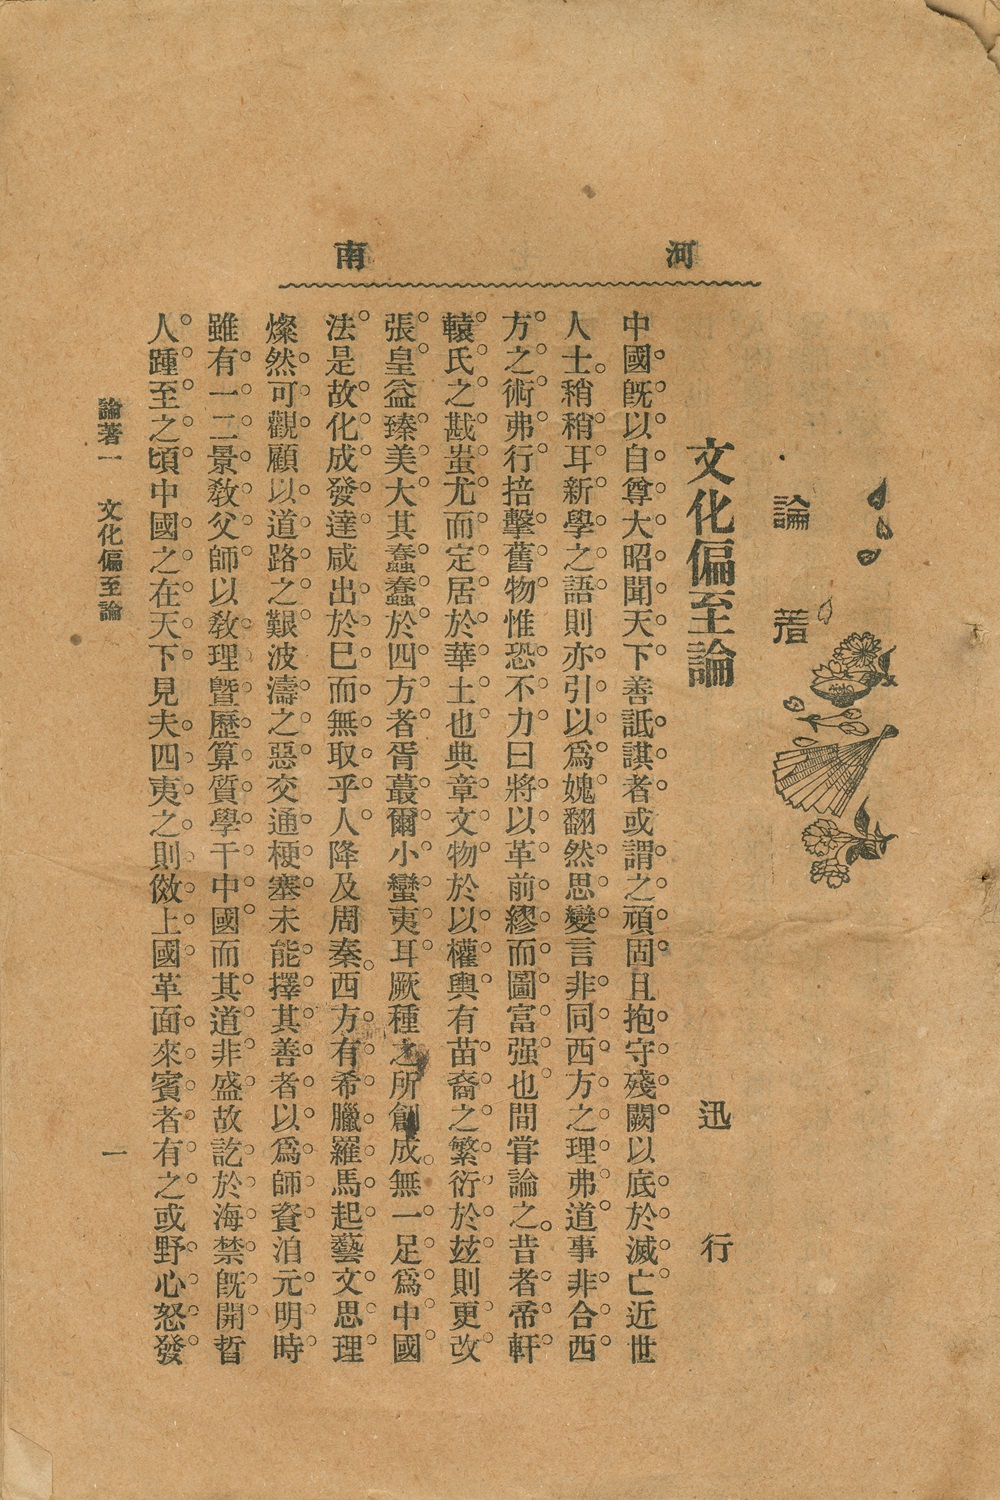 河南
論著
文化偏至論
迅行
中國既以自尊大昭聞天下善詆諆者或謂之頑固且抱守殘闕以底於滅亡近世
人士稍稍耳新學之語則亦引以爲媿翻然思變言非同西方之理弗道事非合西
方之術弗行掊擊舊物惟恐不力曰將以革前繆而圖富强也間嘗論之昔者帝軒
轅氏之戡蚩尤而定居於華土也典章文物於以權輿有苗裔之繁衍於玆則更改
張皇益臻美大其蠢蠢於四方者胥蕞爾小蠻夷耳厥種之所創成無一足爲中國
法是故化成發達咸出於巳而無取乎人降及周秦西方有希臘羅馬起藝文思理
燦然可觀顧以道路之艱波濤之惡交通梗塞未能擇其善者以爲師資洎元明時
雖有一二景敎父師以敎理曁歷算質學干中國而其道非盛故訖於海禁旣開晳
人踵至之頃中國之在天下見夫四夷之則傚上國革面來賓者有之或野心怒發
論著一 文化偏至論
一